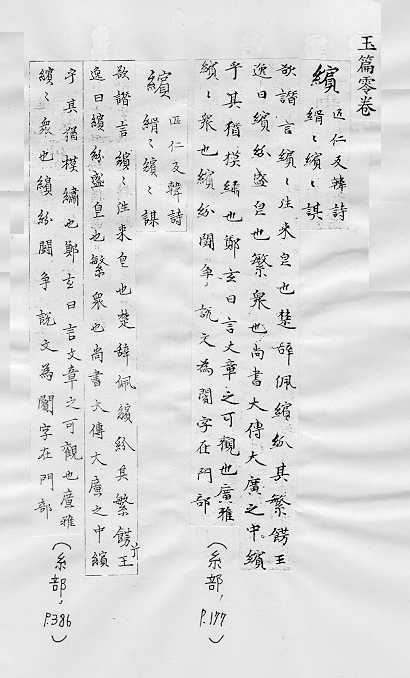 玉篇零卷
繽 匹仁反韓詩
繽〻繽〻謀
欲譖言繽〻往来皃也楚辞佩繽紛其繁餝王
逸曰繽紛盛皃也繁衆也尚書大傳大廣之中繽
乎其猶模繡也鄭玄曰言文章之可觀也廣雅
繽〻衆也繽紛鬪争說文為闠字在門部
(糸部, P.177)
繽 匹仁反韓詩
縜〻繽〻謀
欲譖言繽〻往来皃也楚辞佩繽紛其繁餝王
逸曰繽紛盛皃也繁衆也尚書大傳大廣之中繽
乎其猶模繡也鄭玄曰言文章之可觀也廣雅
繽〻衆也繽紛鬪争說文為闠字在門部
(糸部, P.386)